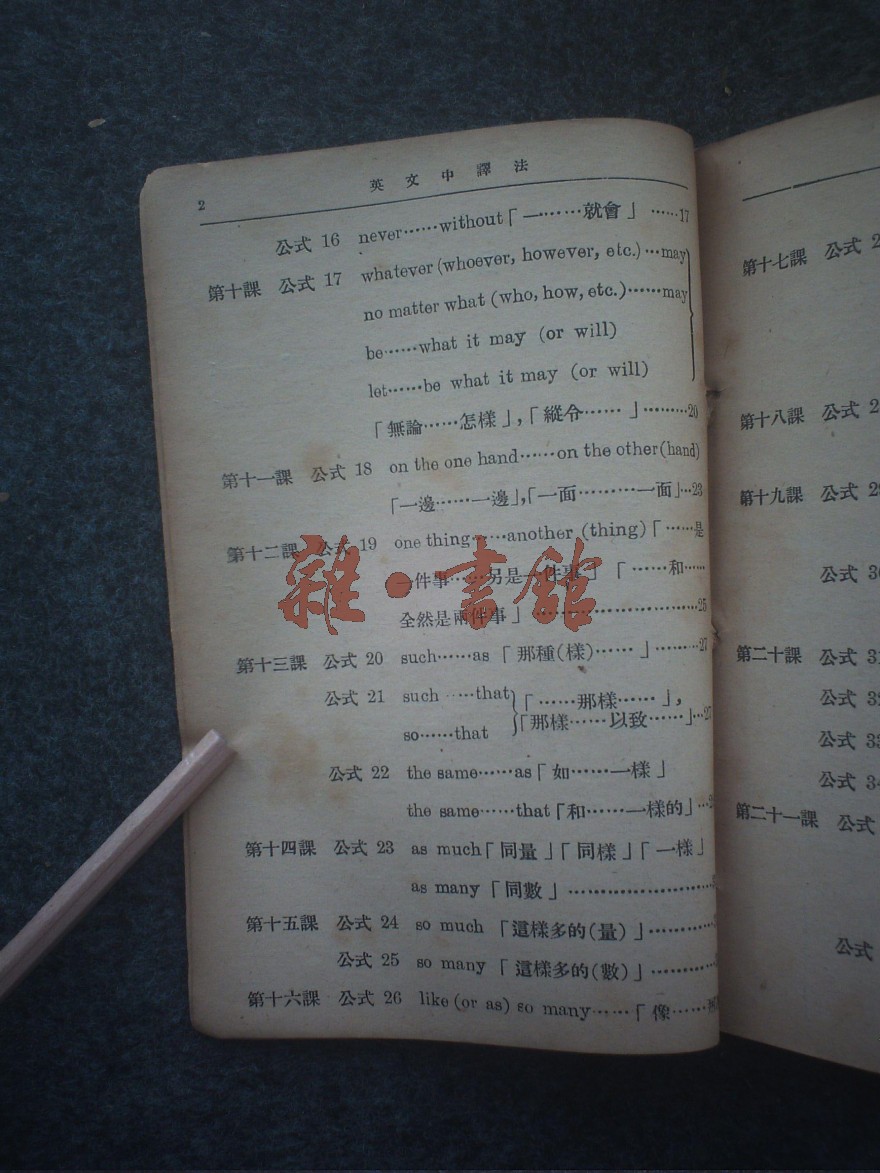 2 英文中譯法
公式 16 never……without「一……就會」……17
第十課 公式 17 whatever (whoever, however, etc.)…may
no matter what (who, how, etc.)……may
be……what it may (or will)
let……be what it may (or will)
「無論……怎樣」,「縱令……」………20
第十一課 公式 18 on the one hand……on the other (hand)
「一邊……一邊」,「一面………一面」…23
第十二課 公式 19 one thing……another (thing)「……是
一件事……另是一件事」「……和……
全然是兩件事」………………………25
雜·書館
第十三課 公式 20 such……as「那種(樣)……」………27
公式 21 such……that「……那樣……」,
so……that「那樣……以致……」…27
公式 22 the same……as「如……一樣」
the same……that「和……一樣的」…
第十四課 公式 23 as much「同量」「同樣」「一樣」
as many「同數」……………………
第十五課 公式 24 so much「這樣多的(量)」…………
公式 25 so many「這樣多的(數)」…………
第十六課 公式 26 like (or as) so many……「像……
第十七課 公式 2
第十八課 公式 2
第十九課 公式 29
公式 30
第二十課 公式 31
公式 32
公式 33
公式 34
第二十一課 公式
公式